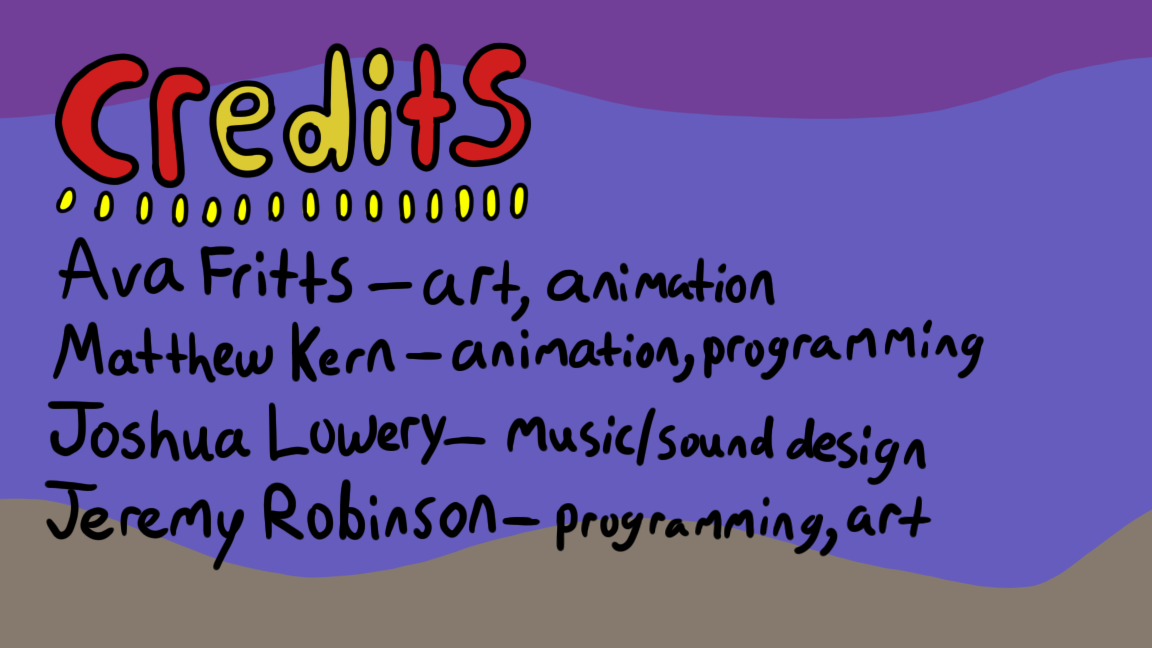 Credits
Ava Fritts – art, animation
Matthew Kern – animation, programming
Joshua Lowery – music/sound design
Jeremy Robinson – programming, art